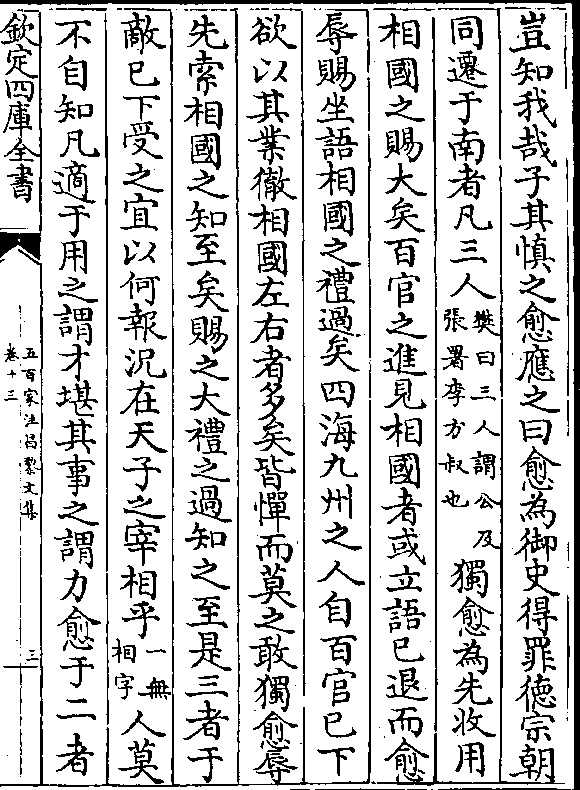 豈知我哉子其慎之愈應之曰愈為御史得罪德宗朝
同遷于南者凡三人樊曰三人謂公及張署李方叔也獨愈為先收用
相國之賜大矣百官之進見相國者或立語已退而愈
辱賜坐語相國之禮過矣四海九州之人自百官已下
欲以其業徹相國左右者多矣皆憚而莫之敢獨愈辱
先索相國之知至矣賜之大禮之過知之至是三者于
敵已下受之宜以何報況在天子之宰相乎一無相字人莫
不自知凡適于用之謂才堪其事之謂力愈于二者
欽定四庫全書
五百家注昌黎文集
卷十三
三